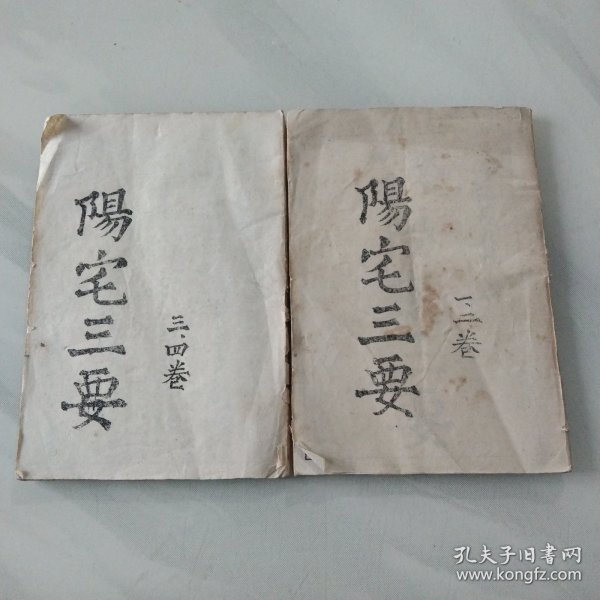 陽宅三要
一二卷
陽宅三要
三、四卷
孔夫子旧書网
www.kongfz.com